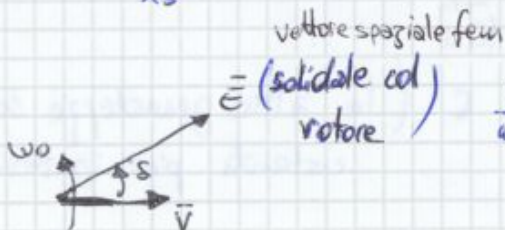 vettore spaziale fem
Ē (solidale col
rotore)
ω0
δ
V̄